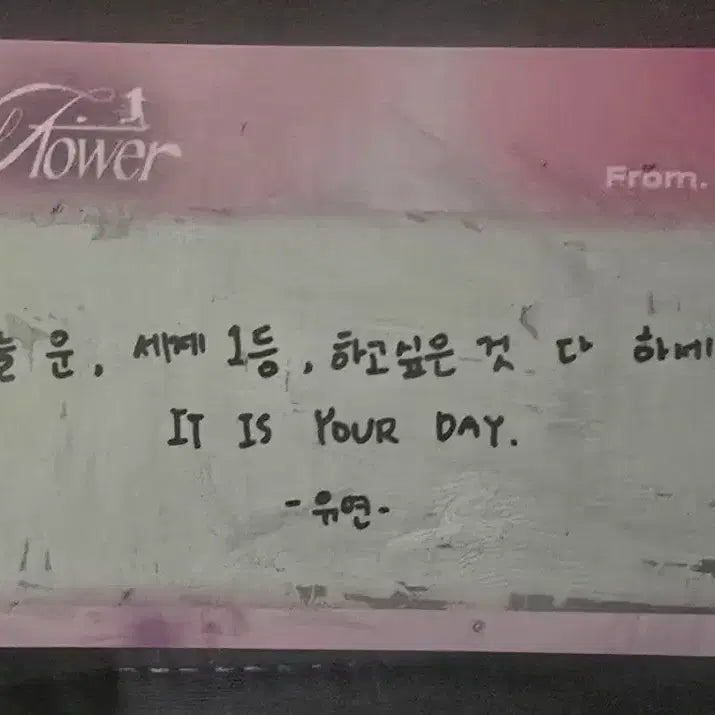 Flower
From.
운, 세계 1등, 하고싶은 것 다 하에
IT IS YOUR DAY.
-유연-